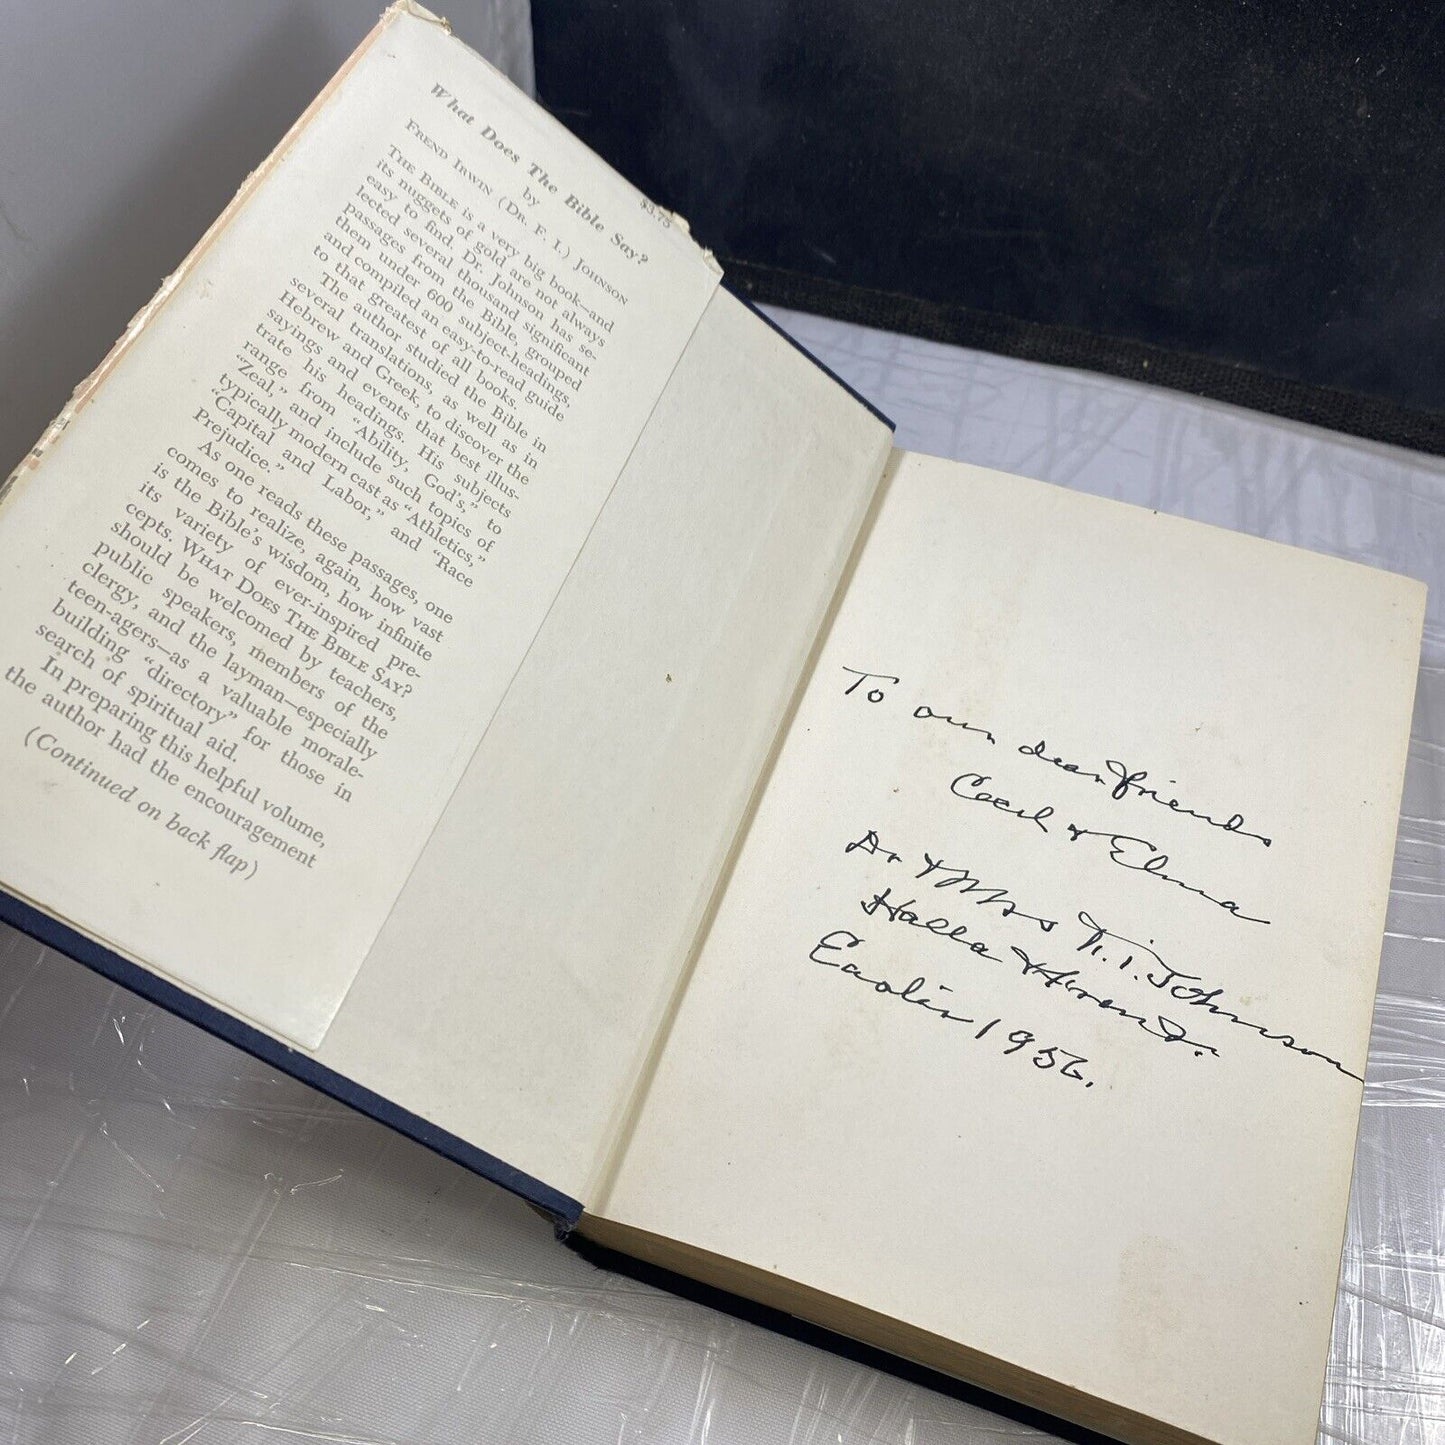 What Does The Bible Say?
$3.75
by
FREND IRWIN (DR. F. I.) JOHNSON
THE BIBLE is a very big book—and
its nuggets of gold are not always
easy to find. Dr. Johnson has se-
lected several thousand significant
passages from the Bible, grouped
them under 600 subject-headings,
and compiled an easy-to-read guide
to that greatest of all books.
The author studied the Bible in
several translations, as well as in
Hebrew and Greek, to discover the
sayings and events that best illus-
trate his headings. His subjects
range from "Ability, God's," to
"Zeal," and include such topics of
typically modern cast as "Athletics,"
"Capital and Labor," and "Race
Prejudice."
As one reads these passages, one
comes to realize, again, how vast
is the Bible's wisdom, how infinite
its variety of ever-inspired pre-
cepts. WHAT DOES THE BIBLE SAY?
should be welcomed by teachers,
public speakers, members of the
clergy, and the layman—especially
teen-agers—as a valuable morale-
building "directory" for those in
search of spiritual aid.
In preparing this helpful volume,
the author had the encouragement
(Continued on back flap)
To our dear friends
& Elma
Dr & Mrs F. I. Johnson
1956.